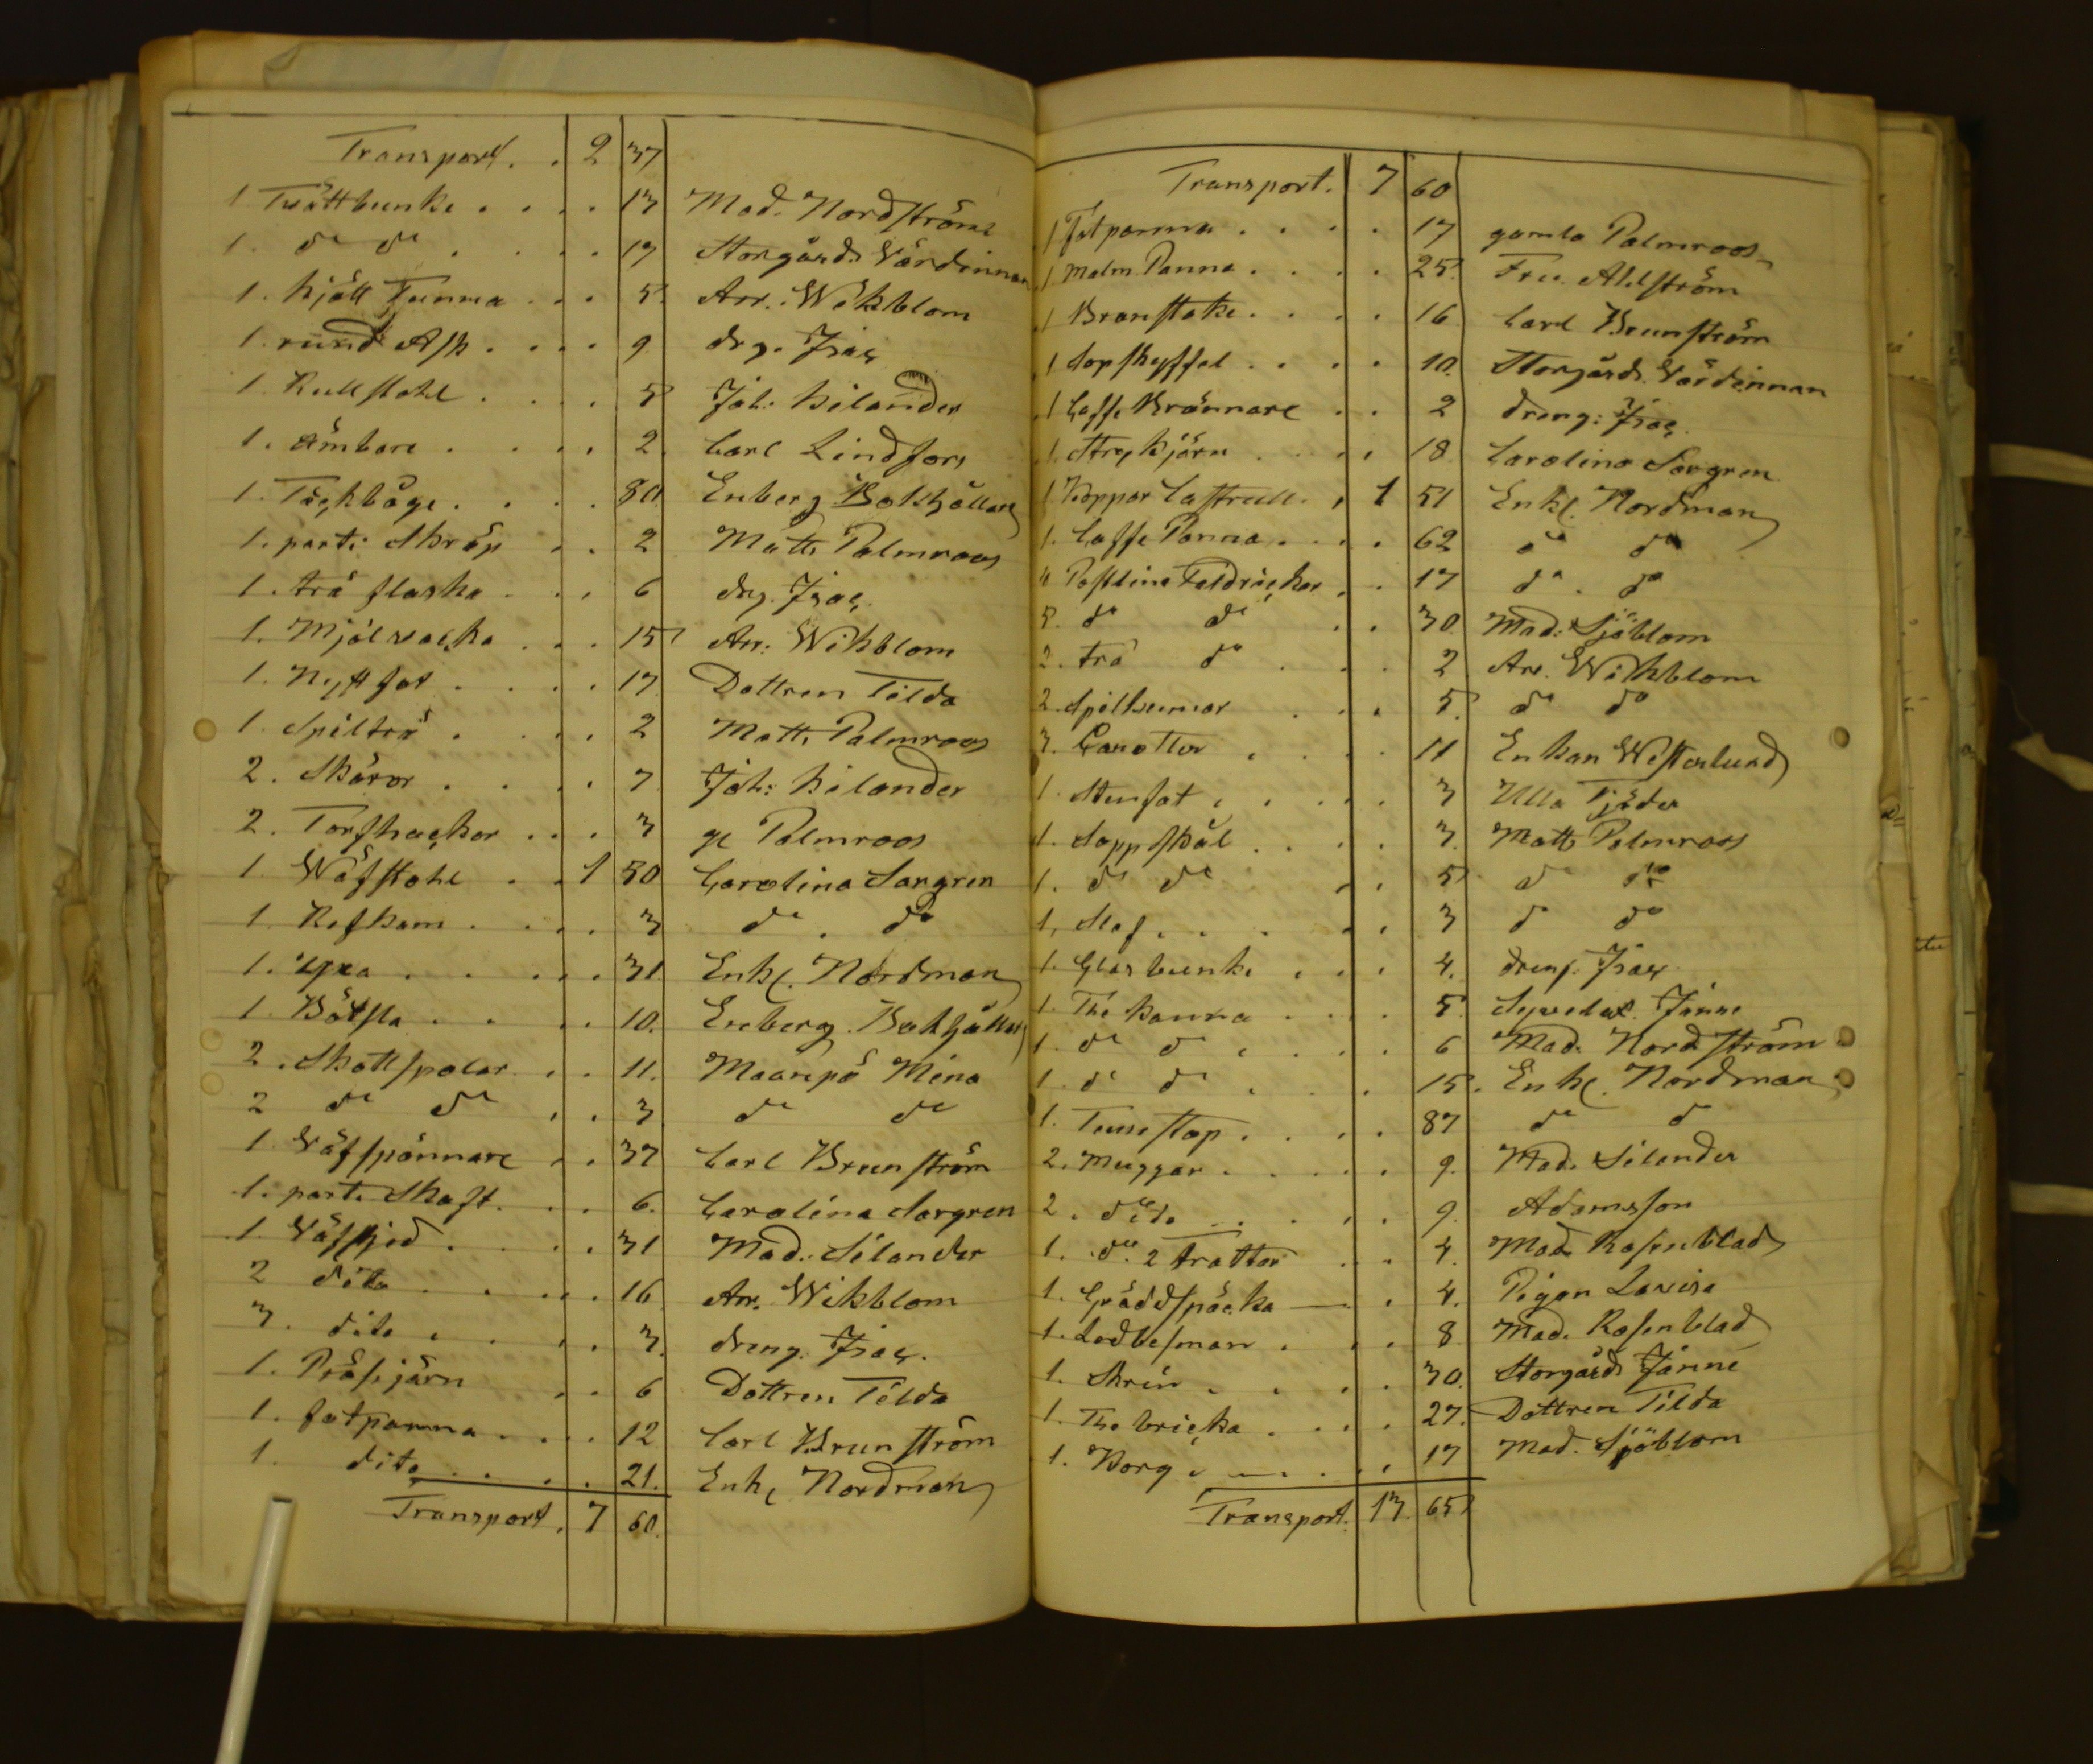 Transport. . 2 37
1 Tvättbunke . . . . 13 Mad. Nordström
1. do do . . . . 17 Storgårds Värdinnan
1. Kjöll Tunna . . . 5. Arr. Wikblom
1. rund Ask . . . . 9 drg. Isac
1. Rullstohl . . . . 5 Joh: Kilander
1. ämbare . . . . 2. Carl Lindfors
1. Täckbåge . . . . 80. Enberg Bokhållare
1. parti Skräp . . 2 Matts Palmroos
1. trä flaska . . . 6 drg. Isac
1. Mjölvacka . . . 15 Arr: Wikblom
1. Nytt fat . . . . 17. Dottren Tilda
1. Spilträ . . . . 2 Matts Palmroos
2. Skäror . . . . 7 Joh: Kilander
2. Torfhackor . . . 3 gl Palmroos
1 Wäfstohl . . 1 50 Carolina Sargren
1. Refkam . . . . 3 do . do
1. Yxa . . . . . 31 Enkl. Nordman
1. Båtsla . . . . 10. Enberg. Bokhållare
2. Skottspolar . . 11. Maarepä Mina
2 do do . . 3 do do
1. Väfspännare . . 37 Carl Brunström
1. parti Skaft . . . 6. Carolina Sargren
1. Väfskjed . . . . 31 Mad. Silander
2 dito . . . . 16 Arr. Wikblom
3. dito . . . . 3. dreng. Isac.
1. Präsijärn . . 6 Dottren Tilda
1. fotpanna . . . . 12 Carl Brunström
1. dito . . . . 21. Enkl Nordman
Transport. 7 60.
Transport. 7 60
1 Fotpanna . . . . 17 gamla Palmroos
1 Malm Panna . . . . 25. Fru. Ahlström
1 Branstake . . . . 16 Carl Brunström
1 Sopskyffel . . . . 10. Storgårds. Värdinnan
1 Caffe Brännare . . 2 dreng: Isac.
1. Strykjärn . . . . 18. Carolina Sargren
1 Koppar Castrull. . 1 51 Enkl. Nordman
1. Caffe Panna . . . . 62 do do
4 Postlins Faldrickor . . 17 do . do
5. do do . . 30. Mad: Sjöblom
2. trä do . . . 2 Arr. Wikblom
2. Spilkumar . . . 5. do do
3. Carotter . . . . 11 Enkan Westerlund
1. Stenfat . . . . 3 Ulla Tjäder
1. Soppskål . . . . 3. Matts Palmroos
1. do do . . 5 do do
1. Slef . . . . . 3 do do
1. Glasbunke . . . 4. dreng. Isac
1. The kanna . . . . 5. Janne
1. do do . . . . 6 Mad. Nordström
1. do do . . . 15. Enkl. Nordman
1. Tennstop . . . . 87 do do
2. Muggar . . . . . 9. Mad. Silander
2. dito . . . . . 9. Adamsson
1. do. 2 trattor . . 4. Mad. Rosenblad
1. Gräddsnäcka . 4. Pigan Lovisa
1. Lodbesman . . . 8. Mad. Rosenblad
1. Skrin . . . . 30. Storgårds Janne
1. The bricka . . . . 27. Dottren Tilda
1. Korg . . . . 17 Mad. Sjöblom
Transport. 13. 65